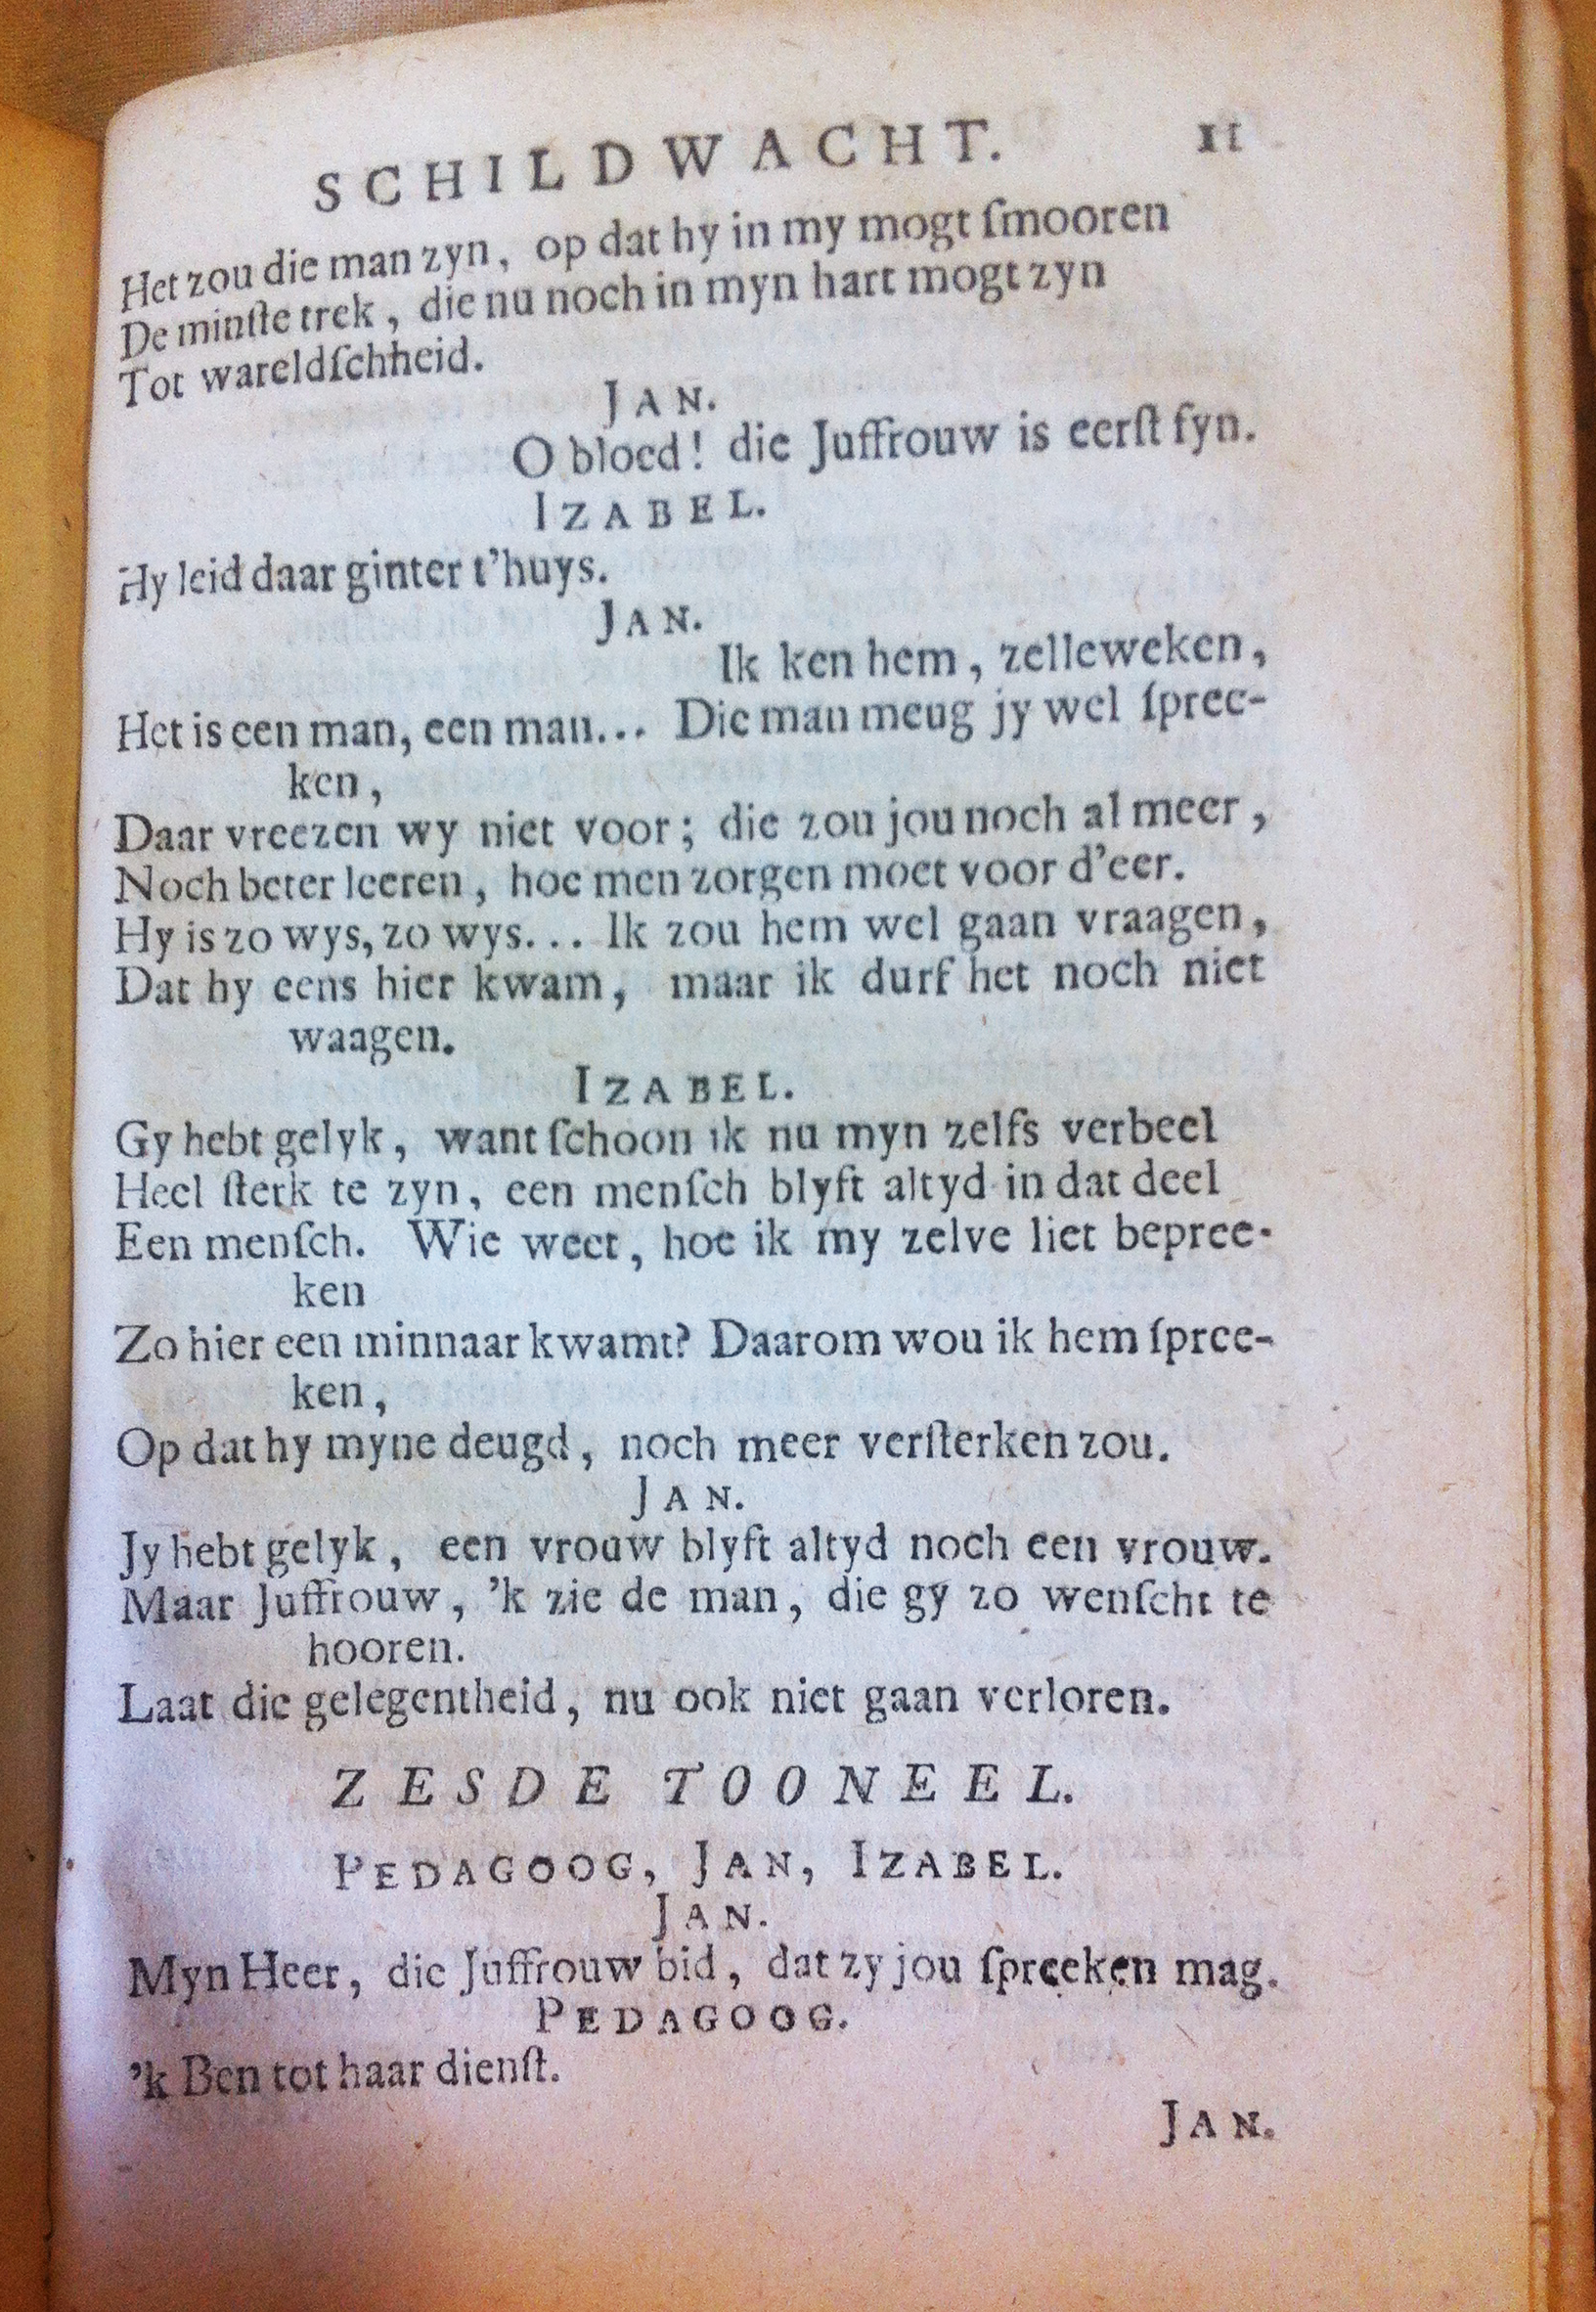 SCHILDWACHT. 11
Het zou die man zyn, op dat hy in my mogt ſmooren
De minſte trek, die nu noch in myn hart mogt zyn
Tot wareldſchheid.
JAN.
O bloed! die Juffrouw is eerſt fyn.
IZABEL.
Hy leid daar ginter t'huys.
JAN.
Ik ken hem, zelleweken,
Het is een man, een man... Die man meug jy wel ſpree-
ken,
Daar vreezen wy niet voor; die zou jou noch al meer,
Noch beter leeren, hoe men zorgen moet voor d'eer.
Hy is zo wys, zo wys... Ik zou hem wel gaan vraagen,
Dat hy eens hier kwam, maar ik durf het noch niet
waagen.
IZABEL.
Gy hebt gelyk, want ſchoon ik nu myn zelfs verbeel
Heel ſterk te zyn, een menſch blyft altyd in dat deel
Een menſch. Wie weet, hoe ik my zelve liet bepree-
ken
Zo hier een minnaar kwamt? Daarom wou ik hem ſpree-
ken,
Op dat hy myne deugd, noch meer verſterken zou.
JAN.
Jy hebt gelyk, een vrouw blyft altyd noch een vrouw.
Maar Juffrouw, 'k zie de man, die gy zo wenſcht te
hooren.
Laat die gelegentheid, nu ook niet gaan verloren.
ZESDE TOONEEL.
PEDAGOOG, JAN, IZABEL.
JAN.
Myn Heer, die Juffrouw bid, dat zy jou ſpreeken mag.
PEDAGOOG.
'k Ben tot haar dienſt.
JAN.